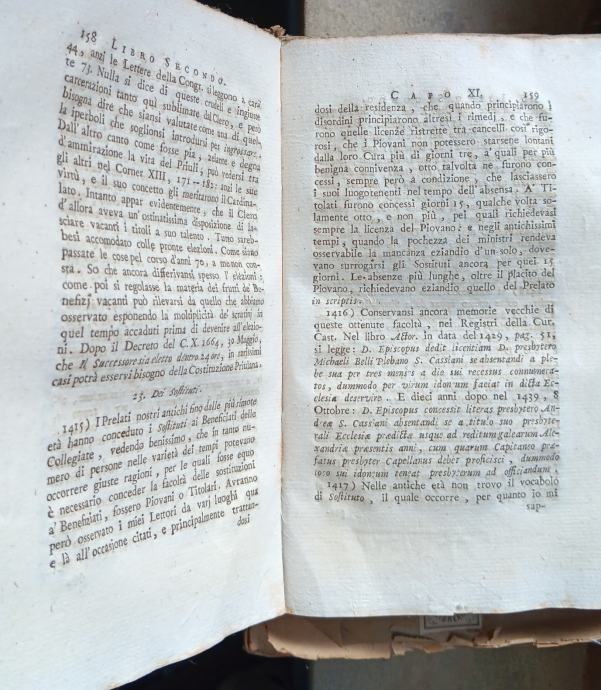 158 LIBRO SECONDO.
44, anzi le Lettere della Congr. si leggono a cara
te 73. Nulla si dice di queste crudeli e ingiuste
carcerazioni tanto qui sublimate dal Clero, e però
bisogna dire che siansi valutate come una di quelle
iperboli che soglionsi introdursi per ingrossare.
Dall' altro canto come fosse pia, zelante e degna
d'ammirazione la vita del Priuli, può vedersi tra
gli altri nel Corner XIII, 171--182: anzi le sue
virtù, e il suo concetto gli meritarono il Cardina-
lato. Intanto appar evidentemente, che il Clero
d'allora aveva un'ostinatissima disposizione di la-
sciare vacanti i titoli a suo talento. Tutto sareb-
besi accomodato colle pronte elezioni. Come siano
passate le cose pel corso d'anni 70, a me non con-
sta. So che ancora differivansi spesso l'elezioni;
come poi si regolasse la materia dei frutti de' Be-
nefizj vacanti può rilevarsi da quello che abbiamo
osservato esponendo la moltiplicità de' scrutinj in
quel tempo accaduti prima di devenire all'elezio-
ni. Dopo il Decreto del C. X. 1664, 30 Maggio,
che Il Successore sia eletto dentro 24 ore, in rarissimi
casi potrà esservi bisogno della Costituzione Priulana.
23. Dei Sostituti.
1415) I Prelati nostri antichi sino dalle più rimote
età hanno conceduto i Sostituti ai Beneficiati delle
Collegiate, vedendo benissimo, che in tanto nu-
mero di persone nelle varietà dei tempi potevano
occorrere giuste ragioni, per le quali fosse equo
è necessario conceder la facoltà delle sostituzioni
a' Benefiziati, fossero Piovani o Titolari. Avranno
però osservato i miei Lettori da varj luoghi qua
e là all'occasione citati, e principalmente trattan-
dosi
CAPO XI. 159
dosi della residenza, che quando principiarono i
disordini principiarono altresì i rimedj, e che fu-
rono quelle licenze ristrette tra cancelli così rigo-
rosi, che i Piovani non potessero starsene lontani
dalla loro Cura più di giorni tre, a' quali per più
benigna connivenza, otto talvolta ne furono con-
cessi, sempre però a condizione, che lasciassero
i suoi luogotenenti nel tempo dell'absenza. A' Ti-
tolati furono concessi giorni 15, qualche volta so-
lamente otto, e non più, pei quali richiedevasi
sempre la licenza del Piovano: e negli antichissimi
tempi, quando la pochezza dei ministri rendeva
osservabile la mancanza eziandio d'un solo, dove-
vano surrogirsi gli Sostituti ancora per quei 15
giorni. Le absenze più lunghe, oltre il placito del
Piovano, richiedevano eziandio quello del Prelato
in scriptis.
1416) Conservansi ancora memorie vecchie di
queste ottenute facoltà, nei Registri della Cur.
Cast. Nel libro Actor. in data del 1429, pag. 51,
si legge: D. Episcopus dedit licentiam D. presbytero
Michaeli Belli Plebano S. Cassiani se absentandi a ple-
be sua per tres menses a die sui recessus connumera-
tos, dummodo per virum idoneum faciat in dicta Ec-
clesia deservire. E dieci anni dopo nel 1439, 8
Ottobre: D. Episcopus concessit literas presbytero An-
dreæ S. Cassiani absentandi se a titulo suo presbyte-
rali Ecclesiæ prædictæ usque ad reditum galearum Ale-
xandriæ præsentis anni, cum quarum Capitaneo præ-
fatus presbyter Capellanus debet proficisci, dummodo
loco sui idoneum teneat presbyterum ad officiandum.
1417) Nelle antiche età non trovo il vocabolo
di Sostituto, il quale occorre, per quanto io mi
sap-